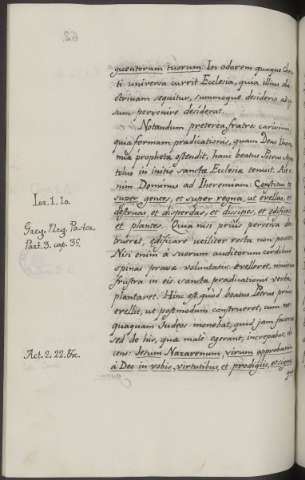 guentorum tuorum: In odorem quaque Chri-
ti universa currit Ecclesia, quia illius do-
ctrinam sequitur, summoque desiderio ad
sum pervenire desiderat.
Notandum præterea fratres carissimi,
quia formam prædicationis, quam Deus
mia propheta ostendit, hanc beatus Petrus Apos
tolus in initio sanctæ Ecclesiæ tenuit. Ait
enim Dominus ad Iheremiam: Constitui te
super gentes, et super regna, ut evellas, et
destruas et disperdas, et dissipes, et ædifices
et plantes. Quia nisi prius perversa de-
strueret, ædificare utiliter recta non posset
Nisi enim à suorum auditorum cordibus
spinas pravæ voluntatis evelleret, nimirum
frustra in eis sancta prædicationis verba
plantaret. Hinc est quod beatus Petrus prius
evellit, ut postmodum construeret, cum ne-
quaquam Judæos monebat, quid jam facerent
sed de his, quæ male egerant, increpabat, di-
cens: Jesum Nazarenum, virum approbatum
à Deo in vobis, virtutibus, et prodigiis, et signis
Ier. 1. 10.
Greg. Reg. Pastor.
Part. 3. cap. 35.
Act. 2. 22. &c.